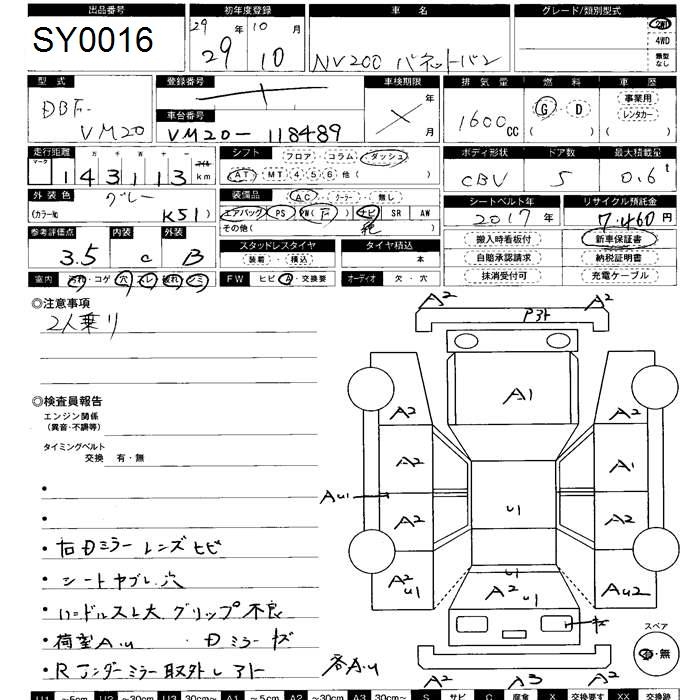 出品番号 初年度登録 車名 グレード/類別型式
SY0016 29年 10月 NV200 バネットバン 2WD
29 10 4WD
類型なし
型式 登録番号 車検期限 排気量 燃料 車歴
DBF- 年 1600cc G・D 事業用
VM20 車台番号 月 ( ) レンタカー
VM20-118489 ( )
走行距離 シフト フロア・コラム・ダッシュ ボディ形状 ドア数 最大積載量
マーク 十万千百十一 マイル
143113 km AT・MT 4 5 6 他( ) CBV 5 0.6t
外装色 グレー 装備品 AC・クーラー・無し シートベルト年 リサイクル預託金
(カラーNo K51) エアバッグ PS PW(F) ナビ SR AW 2017年 7,460円
参考評価点 内装 外装 その他( ) 搬入時看板付 新車保証書
3.5 C B スタッドレスタイヤ タイヤ積込 自賠承認請求 納税証明書
装着・積込 本 抹消受付可 充電ケーブル
室内 汚れ・コゲ・穴・スレ・破れ・シミ FW ヒビ・A・交換要 オーディオ 欠・穴
◎注意事項
2人乗り
◎検査員報告
エンジン関係
(異音・不調等)
タイミングベルト
交換 有・無
・右Dミラーレンズヒビ
・シートヤブレ.穴
・ハンドルスレ大.グリップ不良
・荷室A.U ・Dミラーキズ
・Rアンダーミラー取外しアト
各A.U
A2 A2
Pアト
A1
A2 A2
A2 A1
AU1 U1
A2 A2
A2 U1 A2 U1 U1 AU2
キズ
スペア
有・無
A2 A3 A2
U1 ~5cm U2 ~30cm U3 30cm~ A1 ~5cm A2 ~30cm A3 30cm~ S サビ C 腐食 X 交換要す XX 交換跡